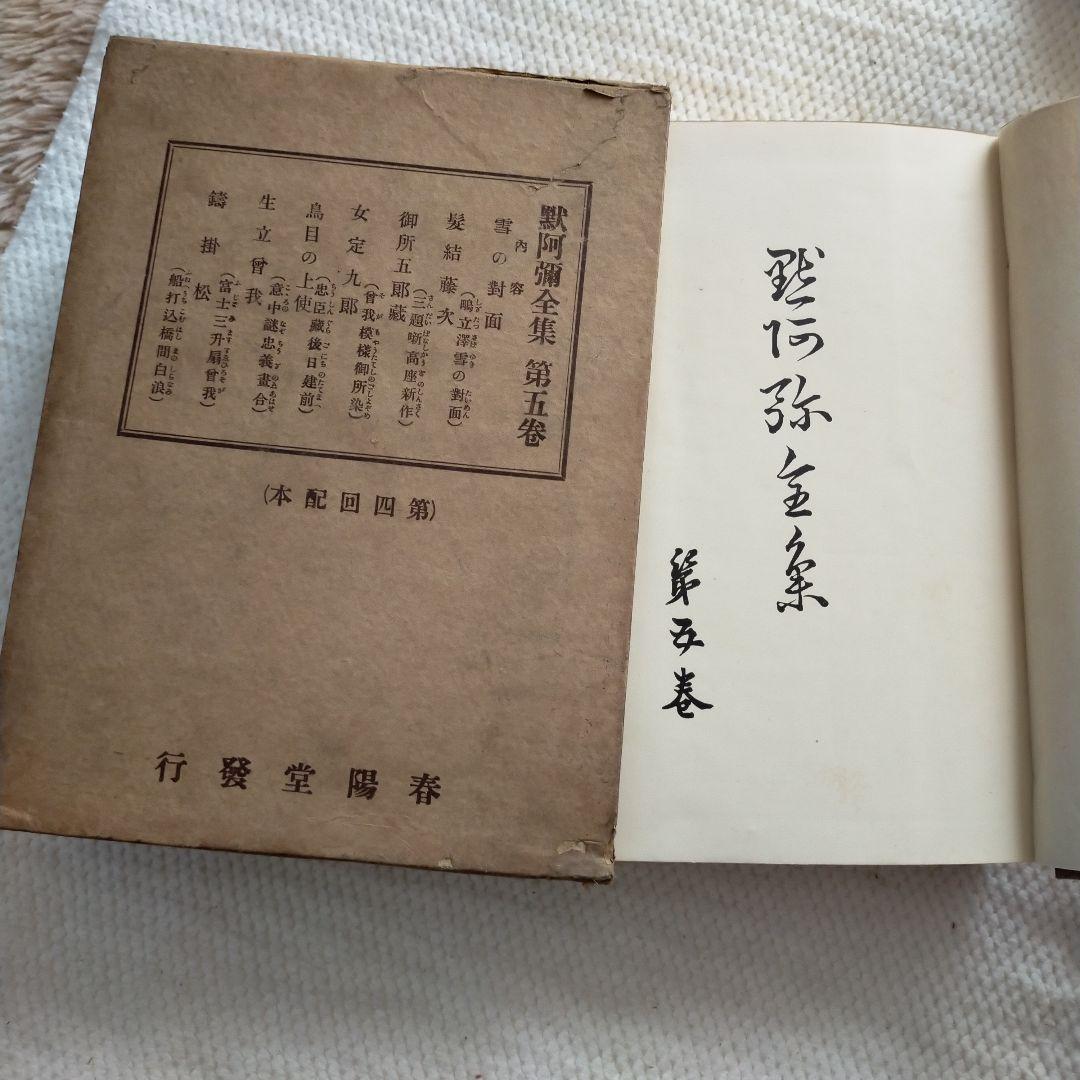 默阿彌全集 第五卷
內容
雪の對面
(鴫立澤雪の對面)
髮結藤次
(三題噺高座新作)
御所五郎藏
(曾我模樣御所染)
女定九郎
(忠臣藏後日建前)
鳥目の上使
(意中謎忠義畫合)
生立曾我
(富士三升扇曾我)
鑄掛松
(船打込橋間白浪)
(第四回配本)
春陽堂發行
默阿弥全集
第五卷